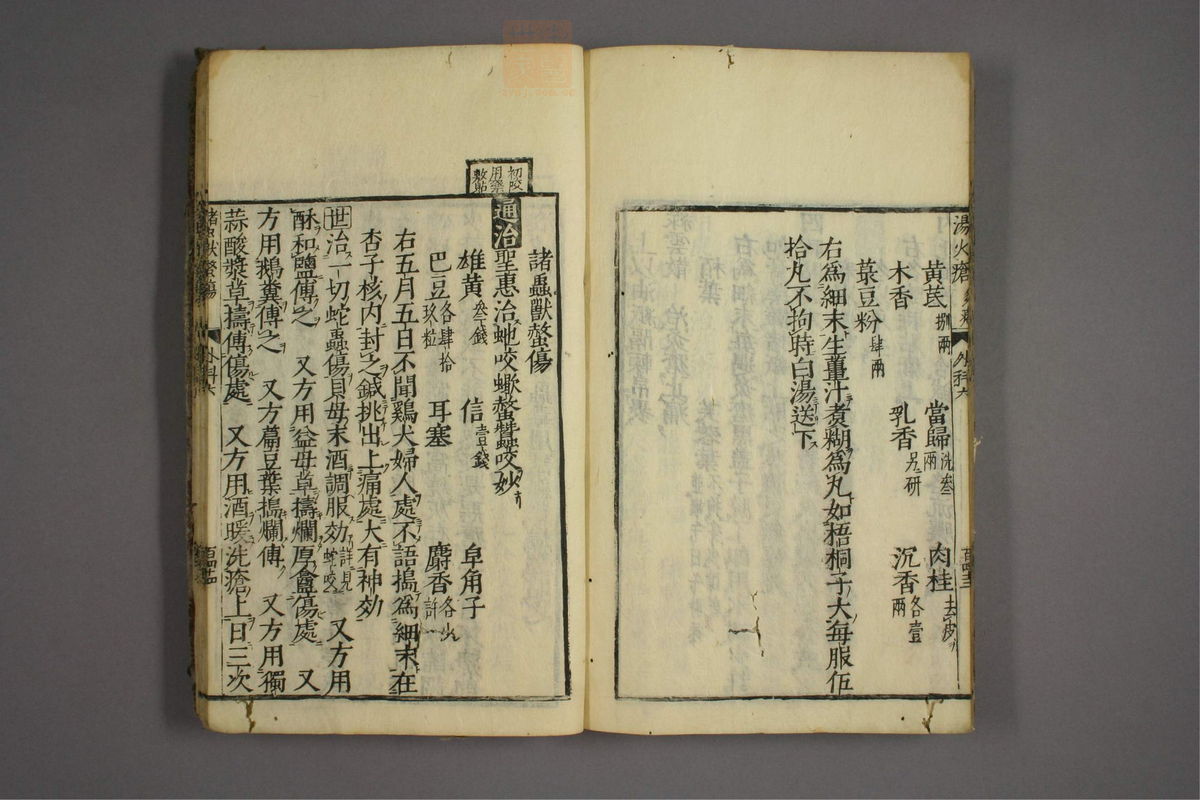 湯火瘡
外科六
黃芪捌兩 當歸洗叁兩 肉桂去皮
木香 乳香另研 沉香各壹兩
菉豆粉肆兩
右爲細末生薑汁煮糊爲丸如梧桐子大每服伍
拾丸不拘時白湯送下
諸蟲獸螫傷
初咬用藥敷貼
通治聖惠治虵咬蠍螫蠶咬妙方
雄黃叁錢 信壹錢 皁角子
巴豆各肆拾玖粒 耳塞 麝香各少許
右五月五日不聞鷄犬婦人處不語搗爲細末在
杏子核內封之鍼挑出上痛處大有神効
世治一切蛇蟲傷貝母末酒調服効詳見蛇咬 又方用
酥和鹽傅之 又方用益母草擣爛厚盦傷處 又
方用鵝糞傅之 又方藊豆葉搗爛傅 又方用獨
蒜酸漿草擣傅傷處 又方用酒暖洗瘡上日三次
外科六